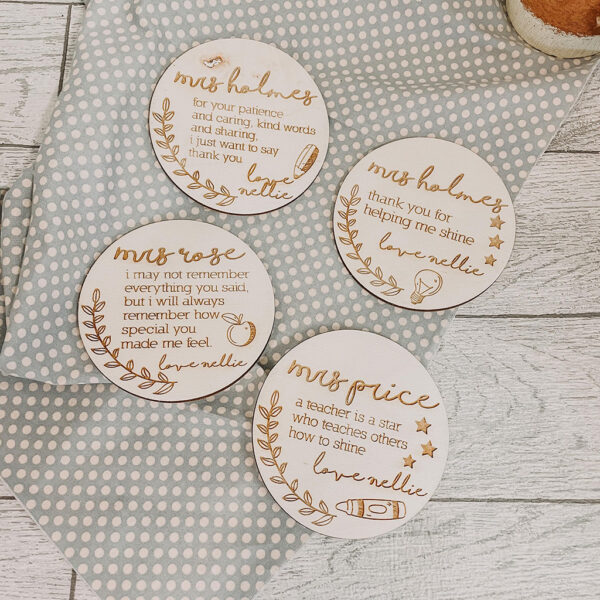 mrs holmes
for your patience
and caring, kind words
and sharing,
i just want to say
thank you
love
nellie
mrs holmes
thank you for
helping me shine
love nellie
mrs rose
i may not remember
everything you said,
but i will always
remember how
special you
made me feel.
love nellie
mrs price
a teacher is a star
who teaches others
how to shine
love nellie